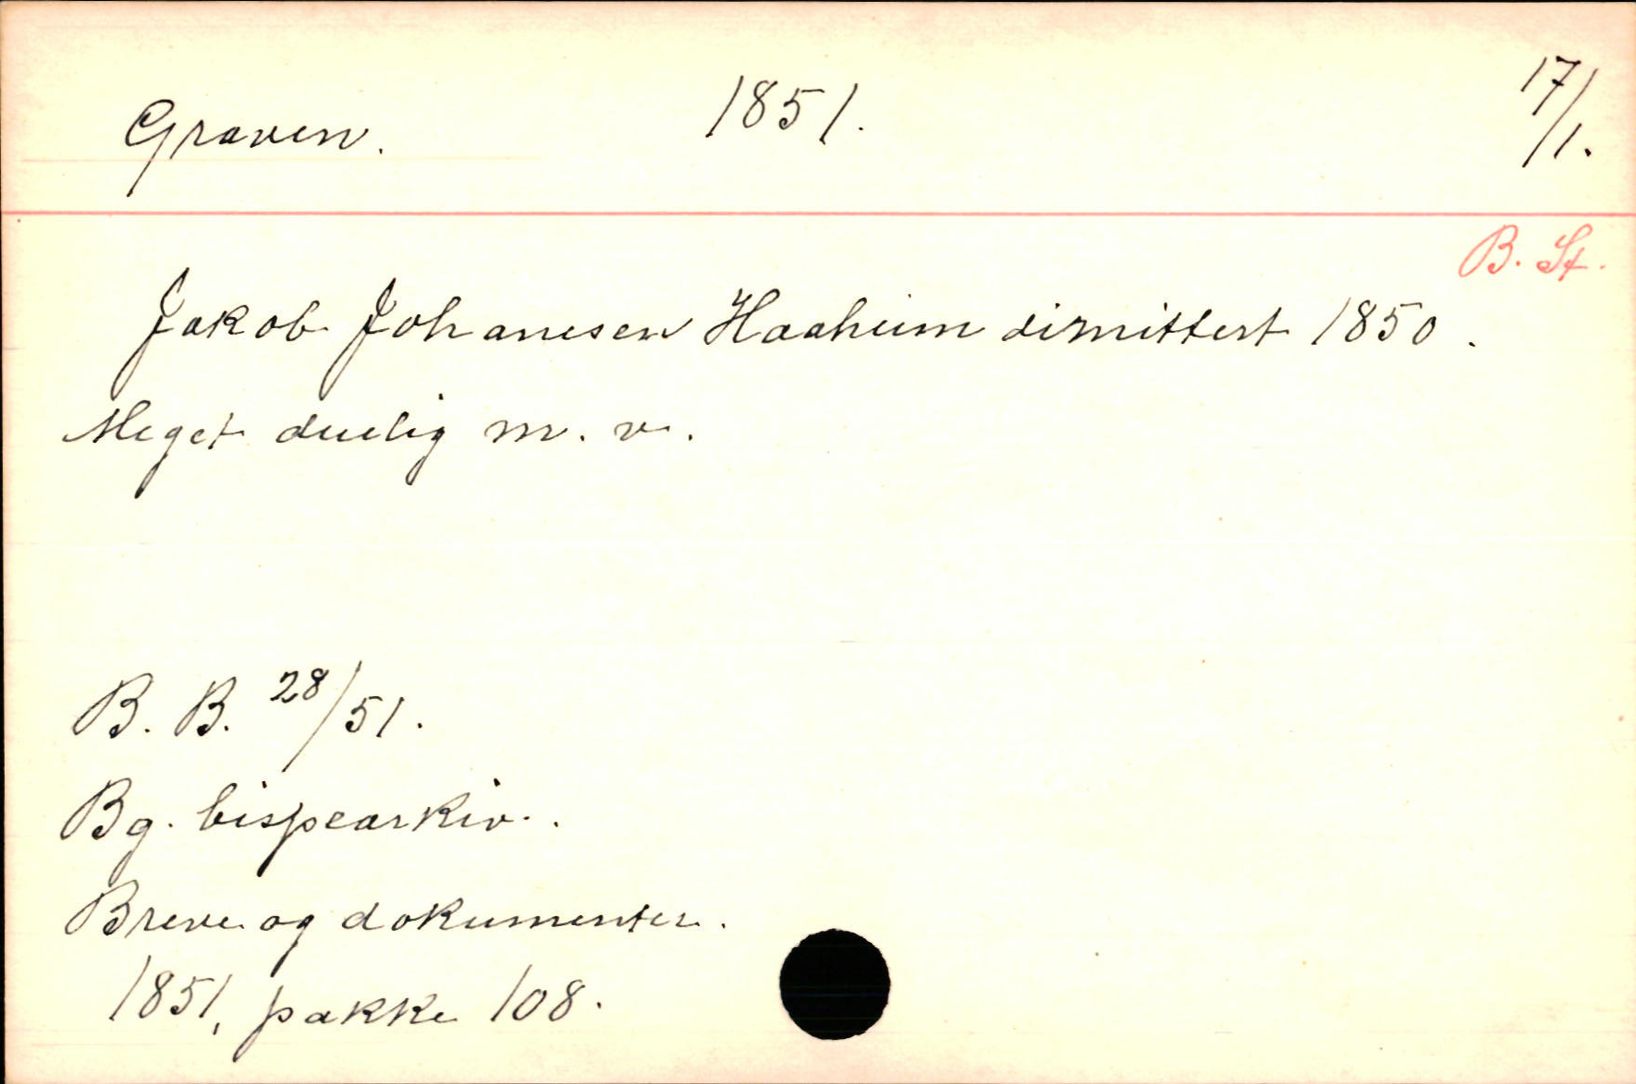 Graven. 1851. 17/1.
B. St.
Jakob Johanesen Haaheim dimittert 1850.
Meget duelig m. v.
B. B. 28/51.
Bg. bispearkiv.
Breve og dokumenter.
1851, pakke 108.